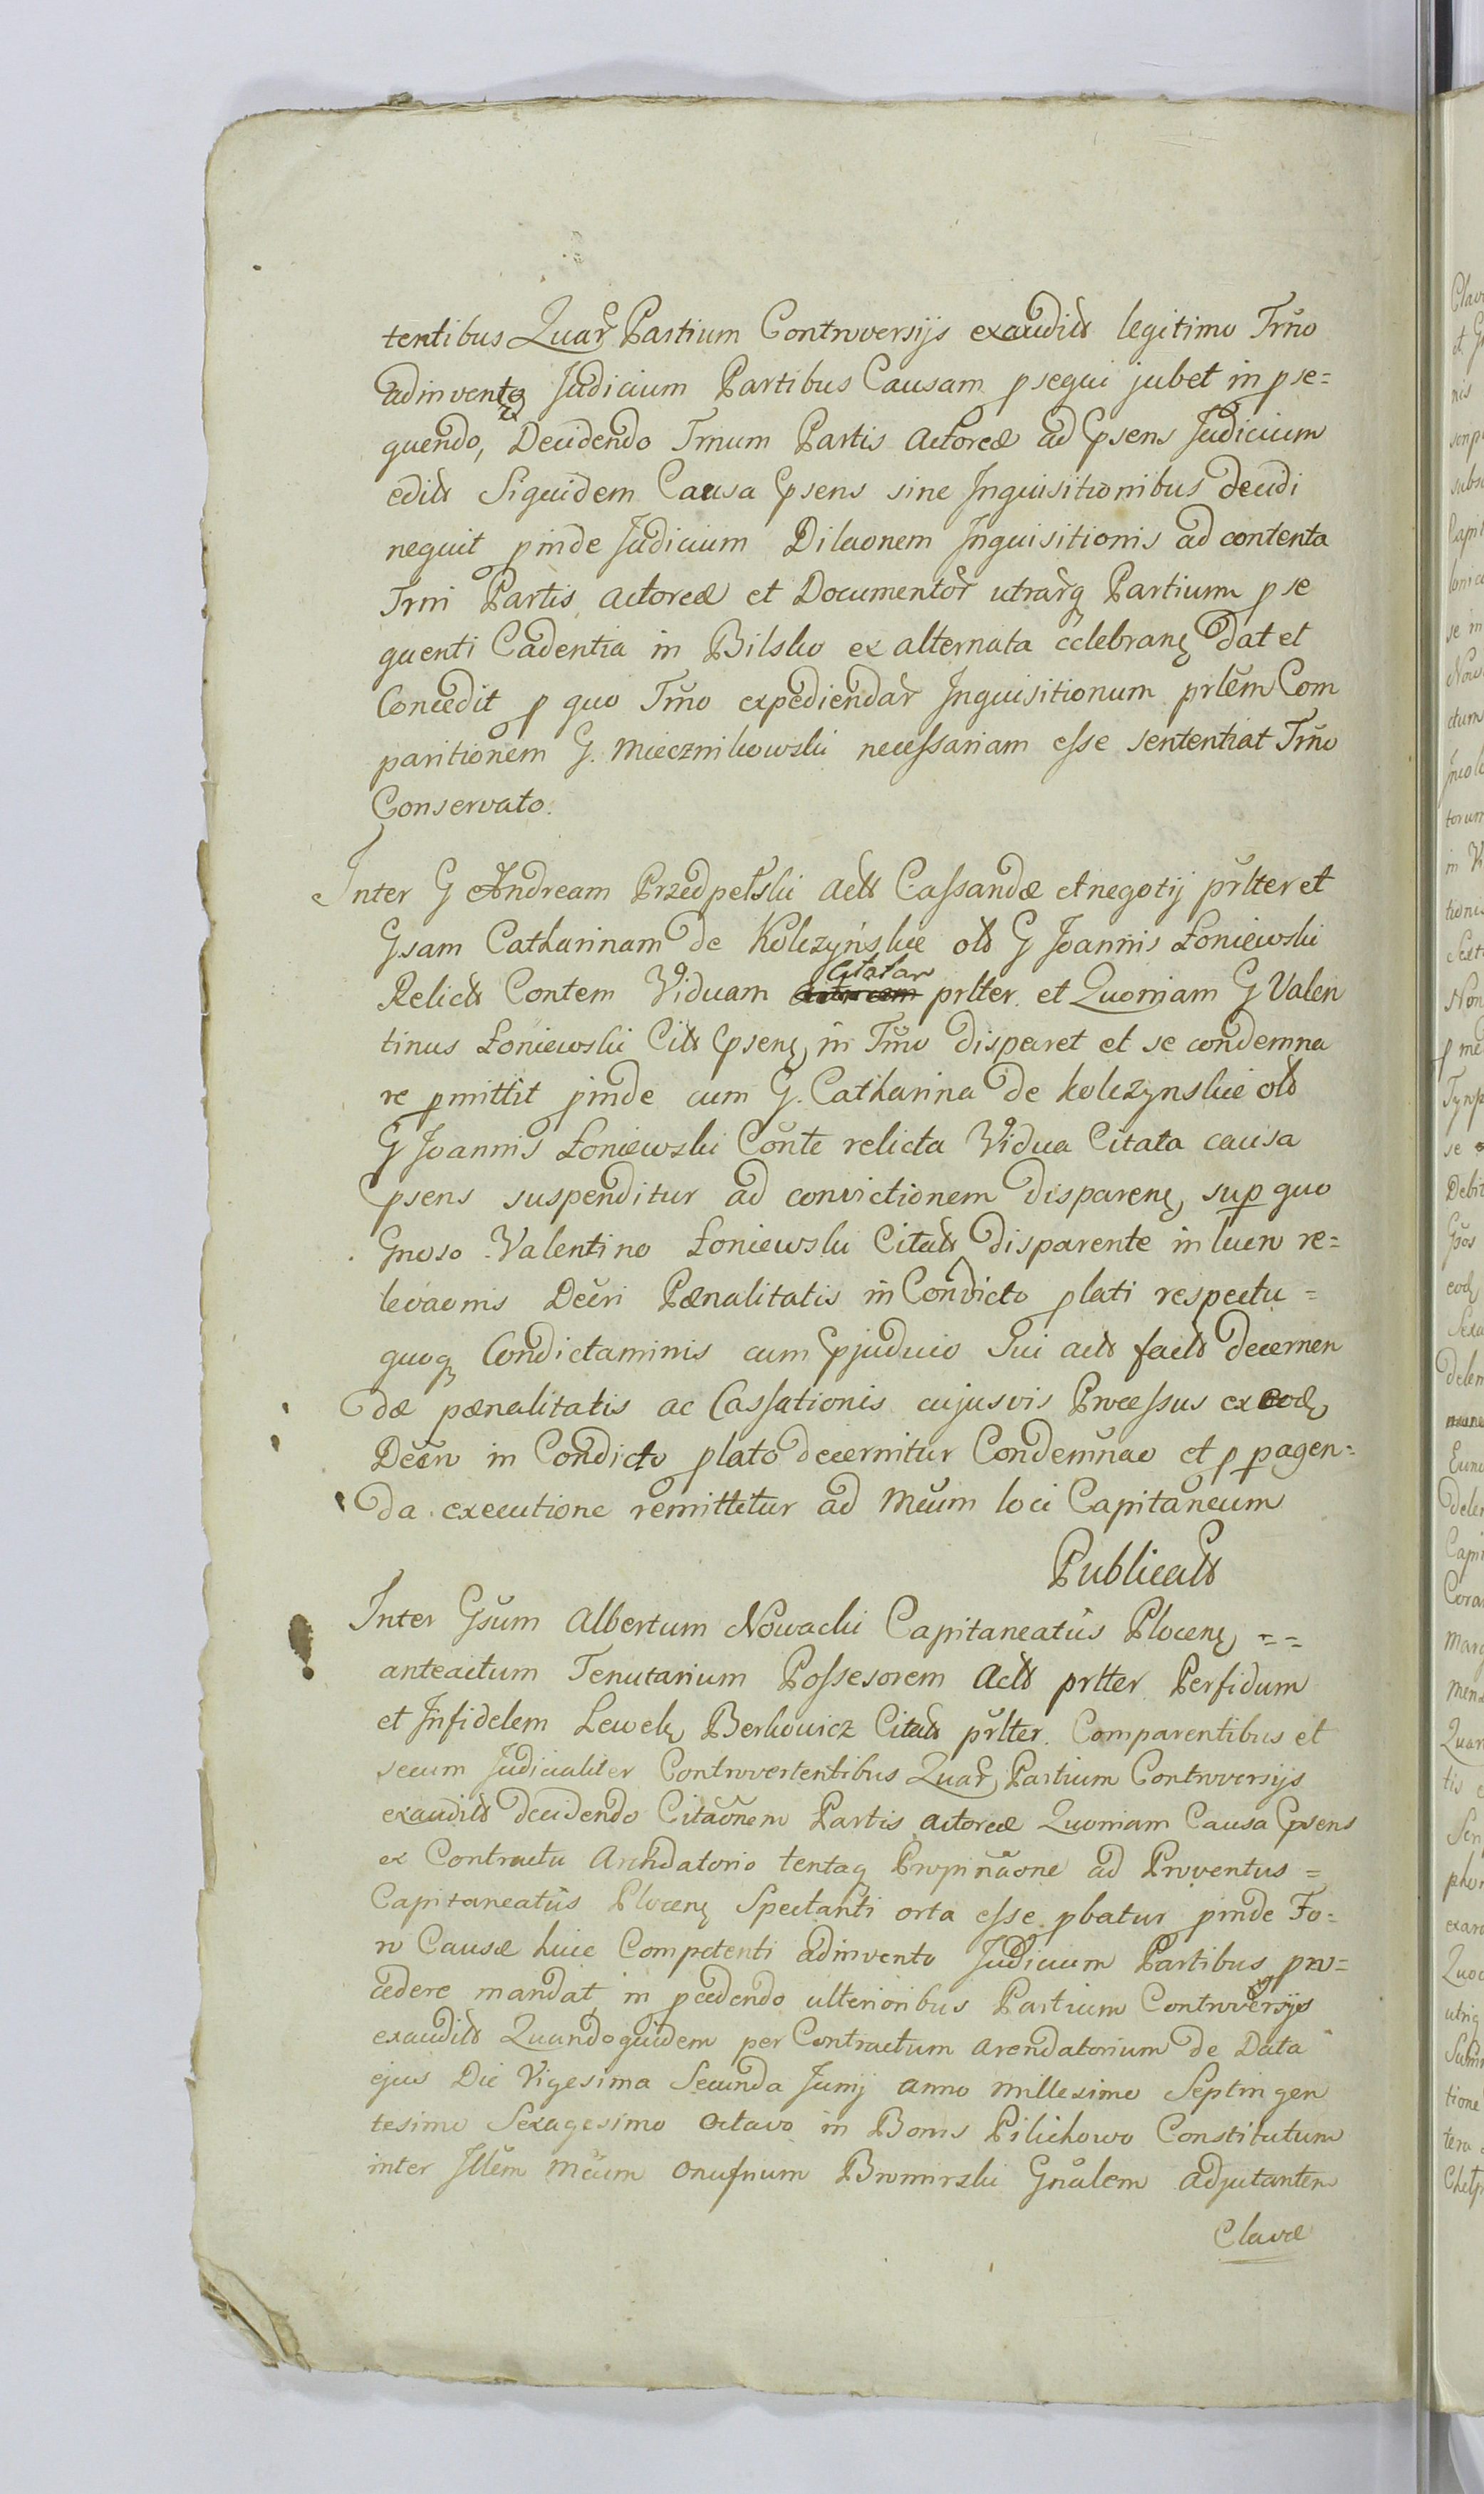 tentibus Quar Partium Controversijs exaudits legitimo Trno
adinvento Judicium Partibus Causam psequi jubet in pse=
quendo, Decidendo Trnum Partis Actoreæ ad Psens Judicium
edits Siquidem Causa Psens sine Inquisitionibus decidi
nequit pinde Judicium Dilaonem Inquisitionis ad contenta
Trni Partis Actoreæ et Documentor utrarq Partium pse
quenti Cadentia in Bilsko ex alternata celebran dat et
Concedit p quo Trno expediendar Inquisitionum prlem Com
paritionem G. Miecznikowski necessariam esse sententiat Trno
Conservato.
Inter G Andream Przedpełski Acts Cassandæ et negotij prlter et
Gsam Catharinam de Kolczyńskie olb G Joannis Łoniewski
Relicts Contem Viduam Citatar prlter. et Quoniam G Valen
tinus Łoniewski Cits Psens in Trno disparet et se condemna
re pmittit pinde cum G. Catharina de Kolczynskie olb
G Joannis Łoniewski Conte relicta Vidua Citata causa
Psens suspenditur ad convictionem disparen, sup quo
Gnoso Valentino Łoniewski Citats disparente in lucro re=
levaonis Decri Pænalitatis in Condicto plati respectu=
quoq Condictaminis cum Pjudicio Sui acts facts decernen
dæ pænalitatis ac Cassationis cujusvis Processus ex eod
Decro in Condicto plato decernitur Condemnao et p pagen=
da executione remittitur ad Mcum loci Capitaneum
Publicats
Inter Gsum Albertum Nowacki Capitaneatus Plocen ==
anteactum Tenutarium Possesorem Acts prlter Perfidum
et Infidelem Lewek Berkowicz Citats prlter. Comparentibus et
secum Judicialiter Controvertentibus Quar Partium Controversijs
exaudits decidendo Citaonem Partis Actoreæ Quoniam Causa Psens
ex Contractu Arendatorio tentaq Propinaone ad Proventus=
Capitaneatus Plocen Spectanti orta esse pbatur pinde Fo=
ro Causæ huic Competenti adinvento Judicium Partibus pro=
cedere mandat in pcedendo ulterioribus Partium Controversijs
exaudits Quandoquidem per Contractum Arendatorium de Data
ejus Die Vigesima Secunda Junij Anno Millesimo Septingen
tesimo Sexagesimo Octavo in Bonis Pilichowo Constitutum
inter Illem Mcum Onufrium Bromirski Gnalem Adjutantem
Clavæ